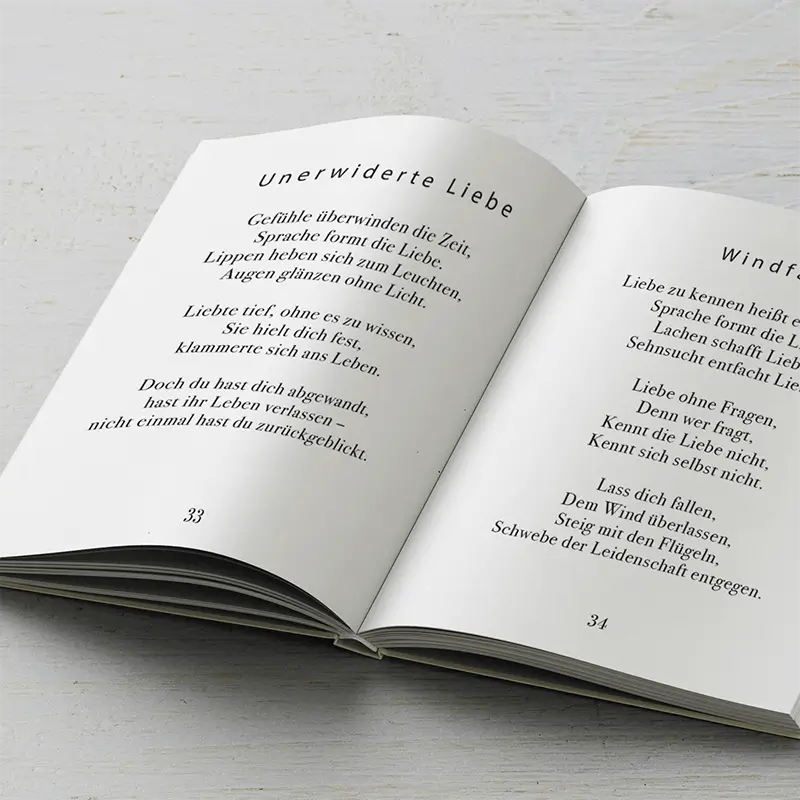 Unerwiderte Liebe
Gefühle überwinden die Zeit,
Sprache formt die Liebe.
Lippen heben sich zum Leuchten,
Augen glänzen ohne Licht.
Liebte tief, ohne es zu wissen,
Sie hielt dich fest,
klammerte sich ans Leben.
Doch du hast dich abgewandt,
hast ihr Leben verlassen –
nicht einmal hast du zurückgeblickt.
33
Liebe zu kennen heißt
Sprache formt die
Lachen schafft
Sehnsucht entfacht
Liebe ohne Fragen,
Denn wer fragt,
Kennt die Liebe nicht,
Kennt sich selbst nicht.
Lass dich fallen,
Dem Wind überlassen,
Steig mit den Flügeln,
Schwebe der Leidenschaft entgegen.
34